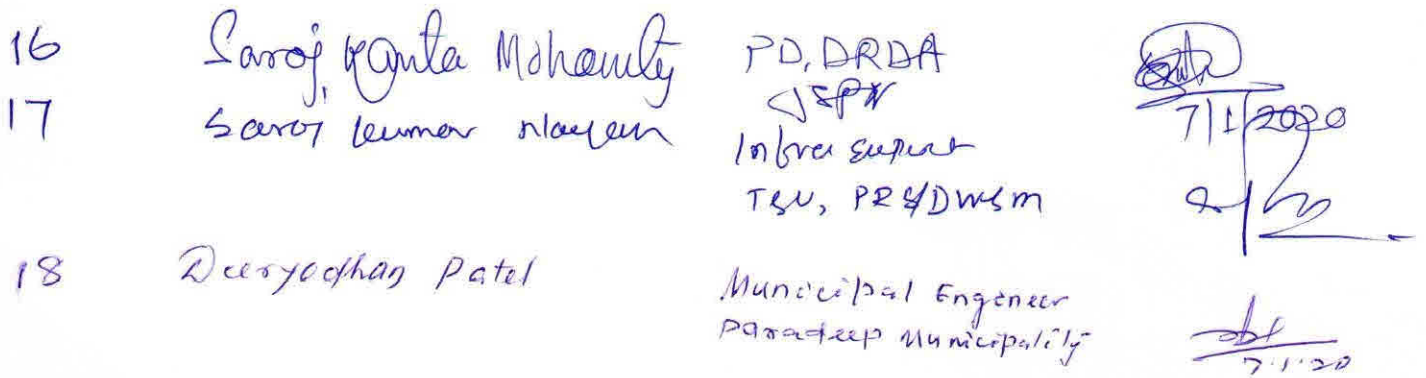 16 Saroj Kanta Mohanty PD, DRDA
JSPR 7/1/2020
17 Saroj kumar Nayak
Infra Expert
TSU, PR&DW
18 Duryodhan Patel
Municipal Engineer
Paradeep Municipality
7.1.20